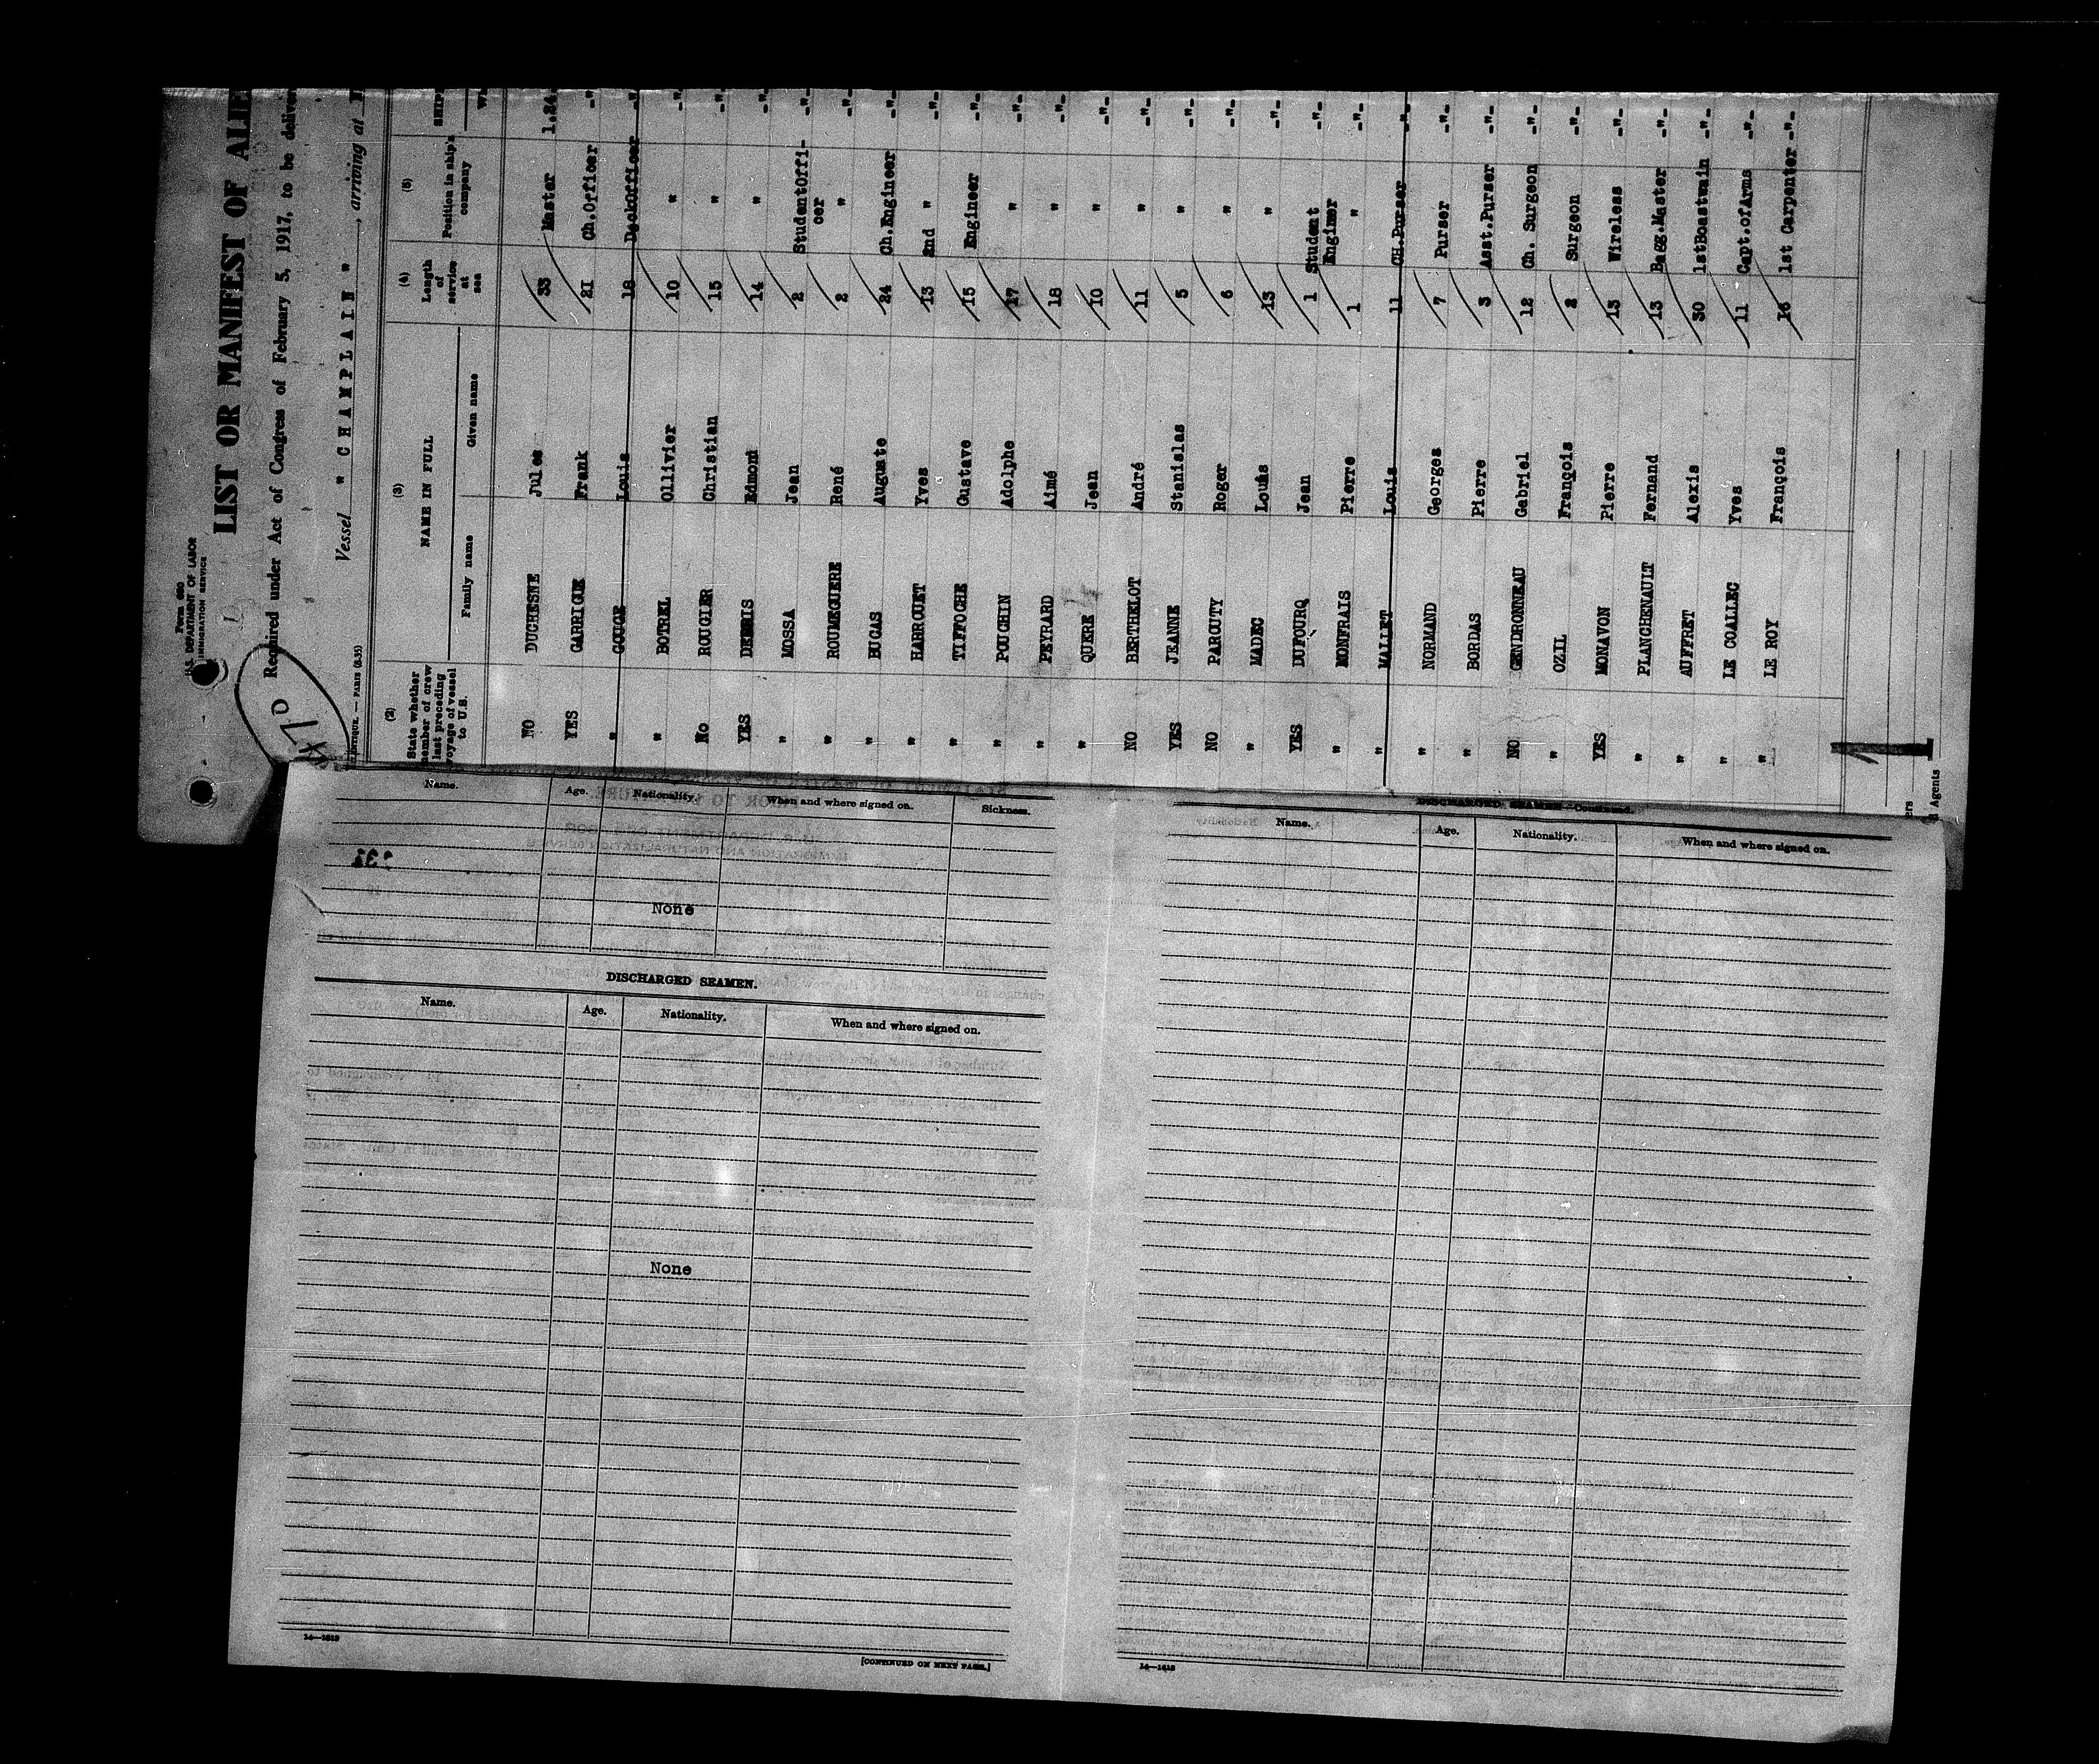 Form 680
U.S. DEPARTMENT OF LABOR
IMMIGRATION SERVICE
LIST OR MANIFEST OF
Required under Act of Congress of February 5, 1917, to be
Vessel " CHAMPLAIN ", arriving at
47 D
PARIS (8-35)
(2) (3) (4) (5)
State whether member of crew last preceding voyage of vessel to U.S. NAME IN FULL Length of service at sea Position in ship's company
Family name Given name
NO DUCHESNE Jules 33 Master 1.24.
YES GARRIGUE Frank 21 Ch.Officer -"-
" GOUGE Louis 18 DeckOfficer -"-
" BOTREL Ollivier 10 " -"-
No ROUGIER Christian 15 " -"-
YES Edmont 14 " -"-
" MOSSA Jean 2 Studentoffi-cer -"-
" ROUMEGUERE René 2 " -"-
" BUGAS Auguste 24 Ch.Engineer -"-
" HABROUET Yves 13 2nd " -"-
" TIFFOCHE Gustave 15 Engineer -"-
" POUCHIN Adolphe 17 " -"-
" PEYRARD Aimé 18 " -"-
" QUERE Jean 10 " -"-
NO BERTHELOT André 11 " -"-
YES JEANNE Stanislas 5 " -"-
NO PAROUTY Roger 6 " -"-
" MADEC Louis 13 " -"-
YES DUFOURQ Jean 1 Student Engineer -"-
" MONFRAIS Pierre 1 " -"-
" MALLET Louis 11 CH.Purser -"-
" NORMAND Georges 7 Purser -"-
" BORDAS Pierre 3 Asst.Purser -"-
NO GENDRONNEAU Gabriel 12 Ch. Surgeon -"-
" OZIL François 2 Surgeon -"-
YES MONAVON Pierre 13 Wireless -"-
" PLANCHENAULT Fernand 13 Bagg.Master -"-
" AUFFRET Alexis 30 1stBoastwain -"-
" LE COALLEC Yves 11 Capt.ofArms -"-
" LE ROY François 16 1st Carpenter -"-
1
Agents
Name. Age. Nationality. When and where signed on. Sickness.
None
DISCHARGED SEAMEN.
Name. Age. Nationality. When and where signed on.
None
14—1813
[CONTINUED ON NEXT PAGE.]
DISCHARGED SEAMEN—Continued.
Name. Age. Nationality. When and where signed on.
14—1813